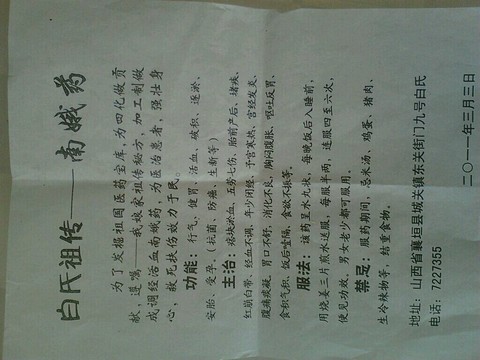 白氏祖传——南娥药
为了发掘祖国医药宝库，为四化做贡
献，遵嘱——我按家祖传秘方，加工制做
成调经活血南娥药，为医治患者，强壮身
心，救死扶伤效力于民。
功能：行气、健胃、活血、破积、逐淤、
安胎、受孕、（抗菌、防癌、生新等）
主治：痞块淤血、五劳七伤、胎前产后、堵痰、
红崩白带、经血不调、年少闭经、子宫寒热、宫经发炎、
腹痛痰凝、胃口不舒、消化不良、胸闷腹胀、呕吐反胃、
食积气积、饭后噎隔、食欲不振等。
服法：该药呈水丸状，每晚饭后入睡前，
用烧姜三片煎水送服，每服半两，连服四至六次，
便见功效，男女老少都可服用。
禁忌：服药期间，忌米汤、鸡蛋、猪肉、
生冷辣物等，结重食物。
地址：山西省襄垣县城关镇东关街门九号白氏
电话：7227355
二〇一一年三月三日